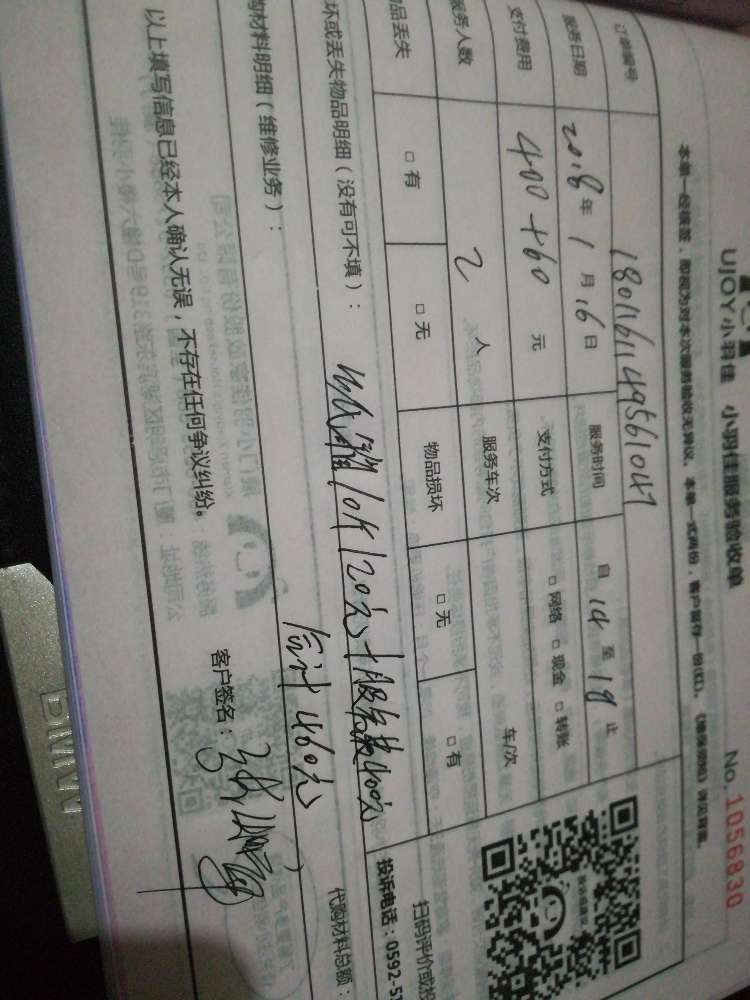 UJOY小羽佳 小羽佳服务验收单
No. 1056830
本单一经接签，即视为对本次服务验收无异议。本单一式两份，客户留存一份(红)。
订单编号 1801161149561047
服务日期 2018年1月16日 服务时间 自14至18止
支付费用 400+60元 支付方式 □网络 □现金 □转账
服务人数 2人 服务车次 车/次
品丢失 □有 □无 物品损坏 □无 □有
坏或丢失物品明细（没有可不填）：
+服务费400元
合计460元
购材料明细（维修业务）：
代购材料总额：
扫码评价或投
投诉电话：0592-57
以上填写信息已经本人确认无误，不存在任何争议纠纷。 客户签名：
BMW